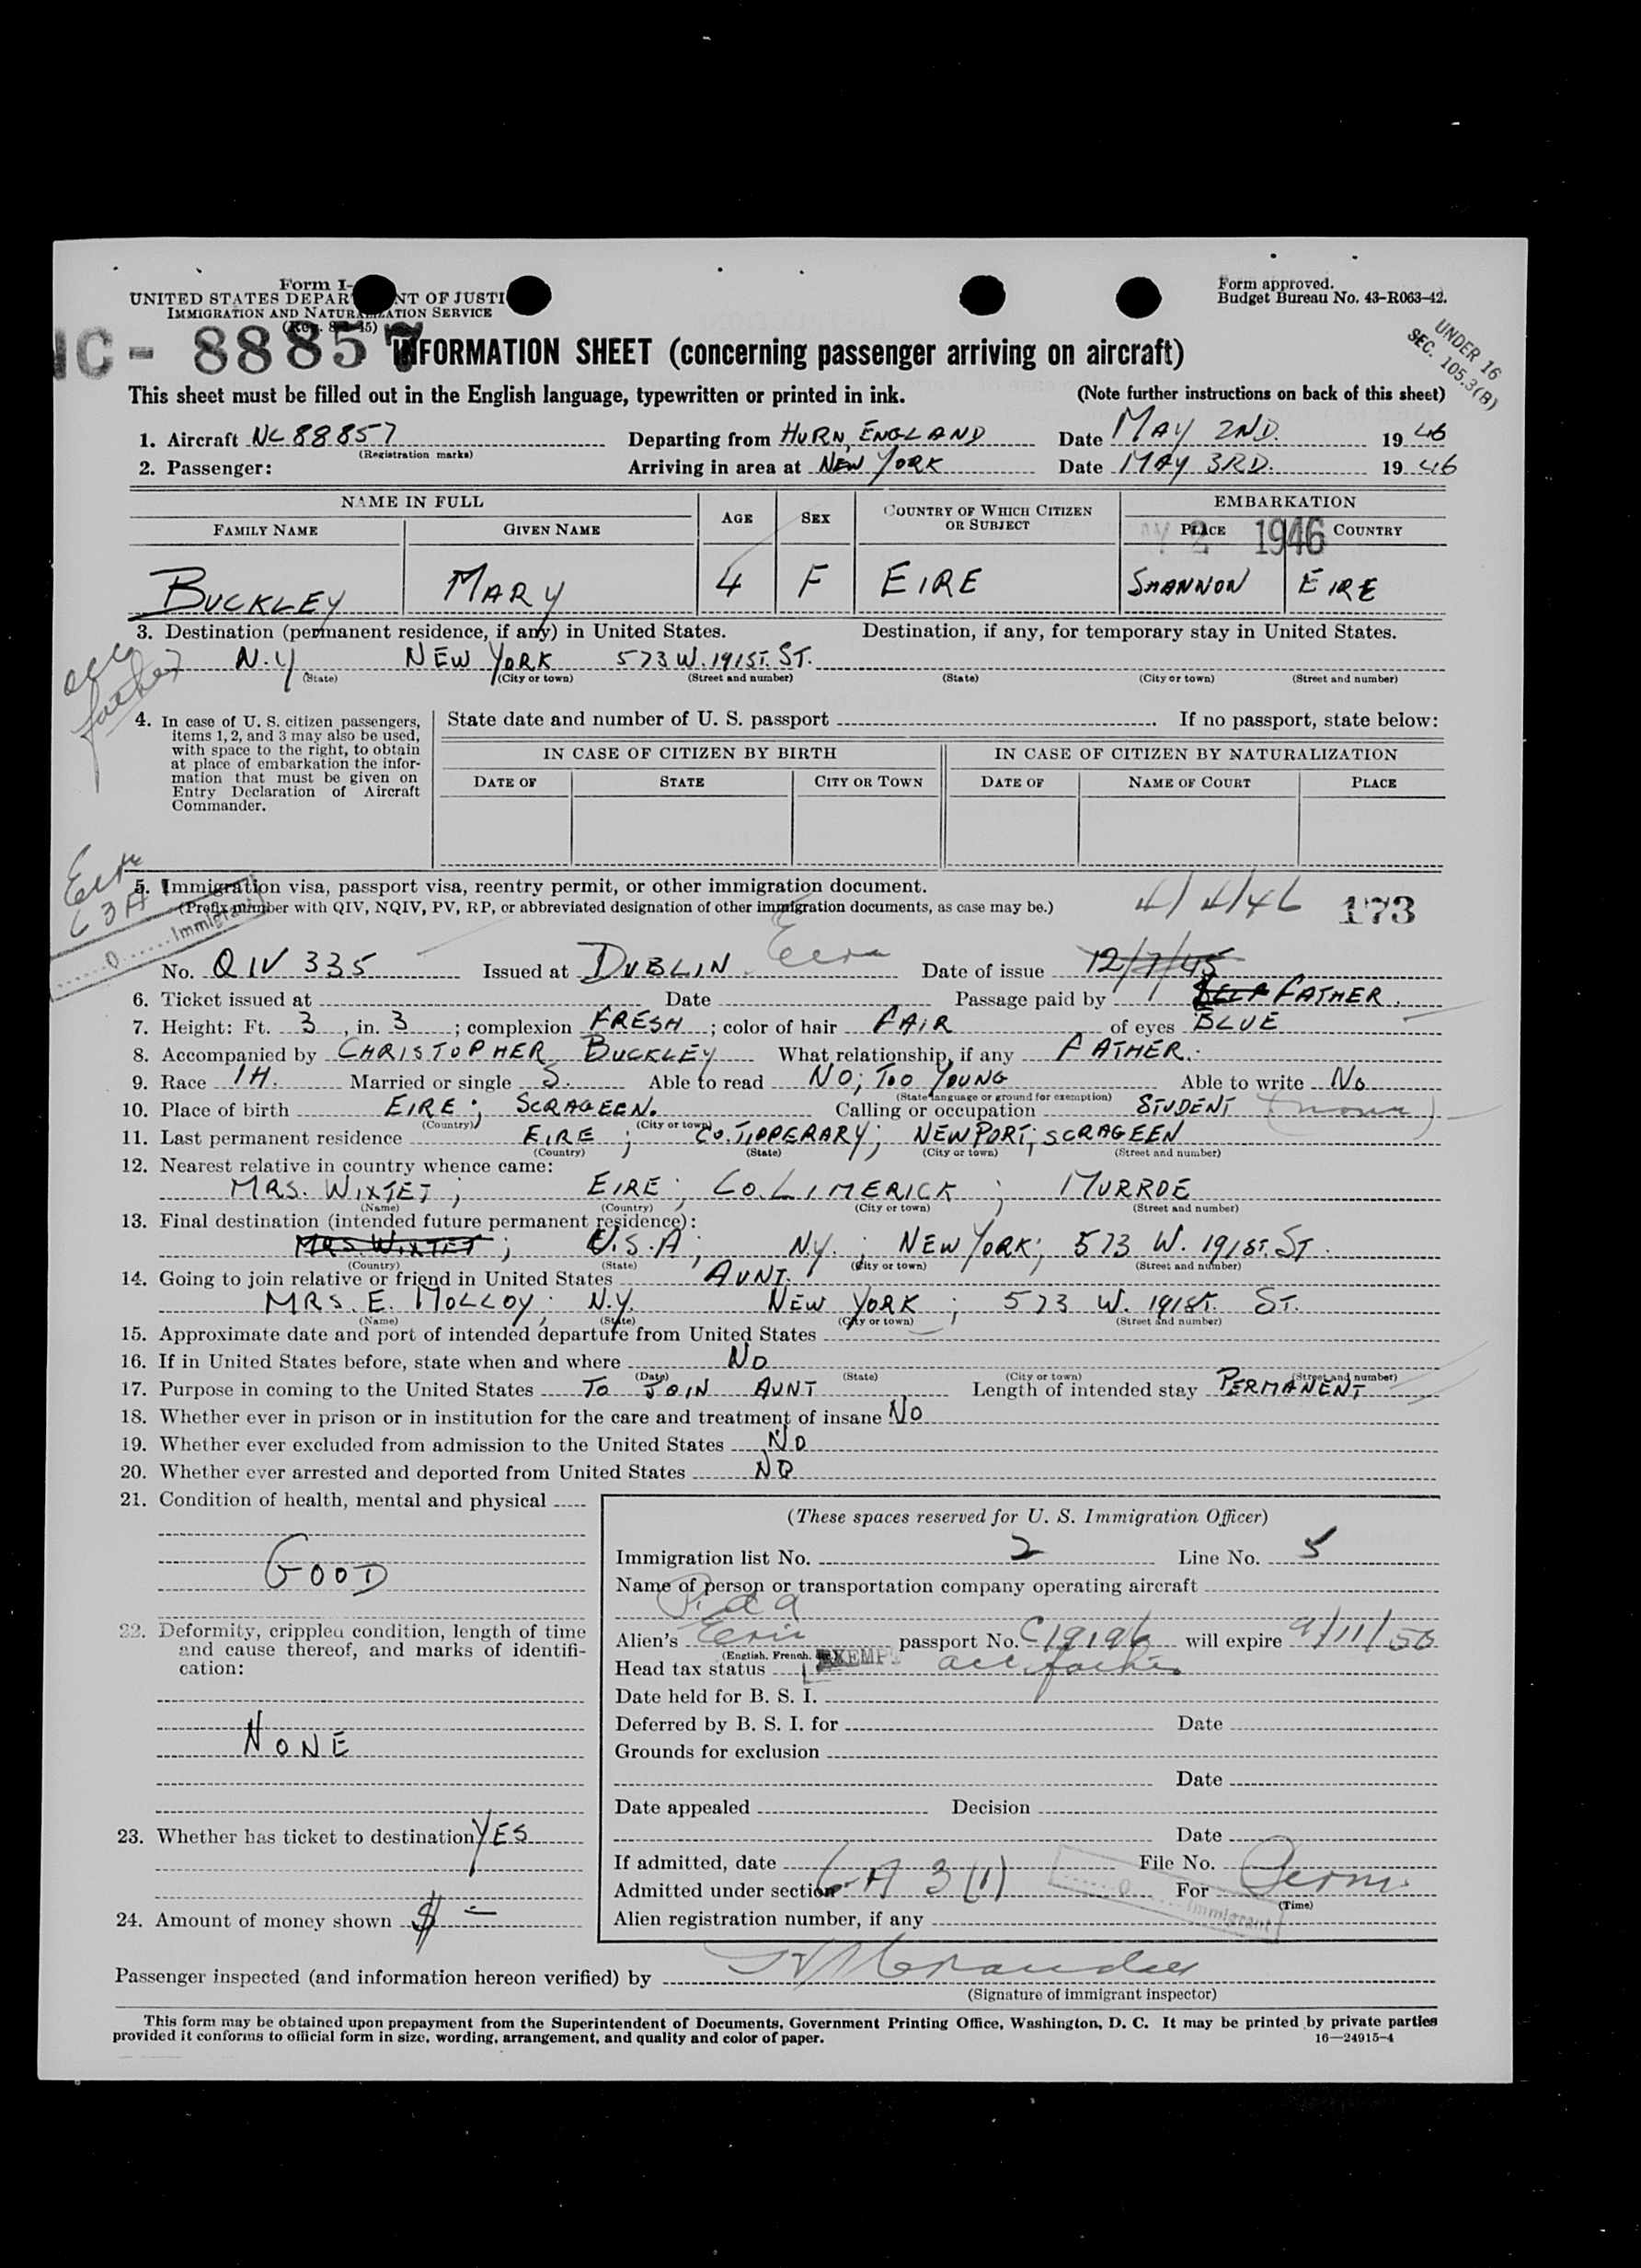 Form I-
UNITED STATES DEPAR NT OF JUSTI
IMMIGRATION AND NATURALIZATION SERVICE
Form approved.
Budget Bureau No. 43-R063-42.
NC - 88857
UNDER 16
SEC. 105.3(B)
INFORMATION SHEET (concerning passenger arriving on aircraft)
This sheet must be filled out in the English language, typewritten or printed in ink. (Note further instructions on back of this sheet)
1. Aircraft NC 88857 Departing from HURN, ENGLAND Date MAY 2ND. 19 46
(Registration marks)
2. Passenger: Arriving in area at NEW YORK Date MAY 3RD. 19 46
NAME IN FULL AGE SEX COUNTRY OF WHICH CITIZEN OR SUBJECT EMBARKATION
FAMILY NAME GIVEN NAME PLACE COUNTRY
2 1946
BUCKLEY MARY 4 F EIRE SHANNON EIRE
3. Destination (permanent residence, if any) in United States. Destination, if any, for temporary stay in United States.
N.Y NEW YORK 573 W. 191ST. ST.
(State) (City or town) (Street and number) (State) (City or town) (Street and number)
father
4. In case of U. S. citizen passengers, items 1, 2, and 3 may also be used, with space to the right, to obtain at place of embarkation the information that must be given on Entry Declaration of Aircraft Commander.
State date and number of U. S. passport . If no passport, state below:
IN CASE OF CITIZEN BY BIRTH IN CASE OF CITIZEN BY NATURALIZATION
DATE OF STATE CITY OR TOWN DATE OF NAME OF COURT PLACE
5. Immigration visa, passport visa, reentry permit, or other immigration document.
(Prefix number with QIV, NQIV, PV, RP, or abbreviated designation of other immigration documents, as case may be.)
4/4/46 173
Immigrant
No. QIV 335 Issued at DUBLIN Eire Date of issue 12/7/45
6. Ticket issued at Date Passage paid by SELF FATHER.
7. Height: Ft. 3, in. 3; complexion FRESH; color of hair FAIR of eyes BLUE
8. Accompanied by CHRISTOPHER BUCKLEY What relationship, if any FATHER.
9. Race IH. Married or single S. Able to read NO; TOO YOUNG Able to write NO
(State language or ground for exemption)
10. Place of birth EIRE; SCRAGEEN. Calling or occupation STUDENT (none)
(Country) (City or town)
11. Last permanent residence EIRE; CO. TIPPERARY; NEWPORT; SCRAGEEN
(Country) (State) (City or town) (Street and number)
12. Nearest relative in country whence came:
MRS. WIXTET; EIRE; CO. LIMERICK; MURROE
(Name) (Country) (City or town) (Street and number)
13. Final destination (intended future permanent residence):
MRS. WIXTET; U.S.A; N.Y.; NEW YORK; 573 W. 191ST. ST.
(Country) (State) (City or town) (Street and number)
14. Going to join relative or friend in United States AUNT.
MRS. E. MOLLOY; N.Y. NEW YORK; 573 W. 191ST. ST.
(Name) (State) (City or town) (Street and number)
15. Approximate date and port of intended departure from United States
16. If in United States before, state when and where NO
(Date) (State) (City or town) (Street and number)
17. Purpose in coming to the United States TO JOIN AUNT Length of intended stay PERMANENT
18. Whether ever in prison or in institution for the care and treatment of insane NO
19. Whether ever excluded from admission to the United States NO
20. Whether ever arrested and deported from United States NO
21. Condition of health, mental and physical
GOOD
22. Deformity, crippled condition, length of time and cause thereof, and marks of identification:
NONE
23. Whether has ticket to destination YES
24. Amount of money shown $ -
(These spaces reserved for U. S. Immigration Officer)
Immigration list No. 2 Line No. 5
Name of person or transportation company operating aircraft
P.a a
Alien's Eire passport No. C19196 will expire 9/11/50
(English, French, etc.)
Head tax status EXEMPT acc father
Date held for B. S. I.
Deferred by B. S. I. for Date
Grounds for exclusion
Date
Date appealed Decision
Date
If admitted, date File No.
Admitted under section 6 A 3 (1) For Perm.
(Time)
Immigrant
Alien registration number, if any
Passenger inspected (and information hereon verified) by
(Signature of immigrant inspector)
This form may be obtained upon prepayment from the Superintendent of Documents, Government Printing Office, Washington, D. C. It may be printed by private parties
provided it conforms to official form in size, wording, arrangement, and quality and color of paper. 16—24915-4